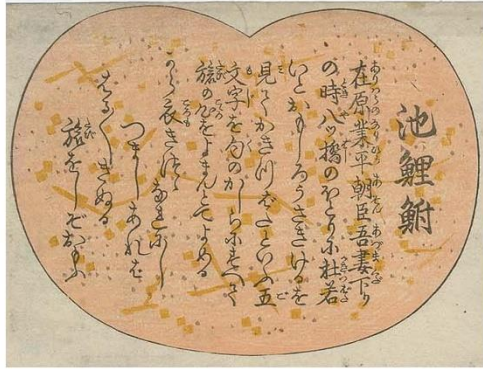 池鯉鮒
在原業平朝臣吾妻下り
の時八ツ橋のほとりに杜若
いとおもしろうさきけるを
見てかきつばたといふ五
文字を句のかしらにすへて
旅の心をよまんとてよめる
から衣きつゝなれにし
つましあれば
はる〲きぬる
旅をしぞおもふ